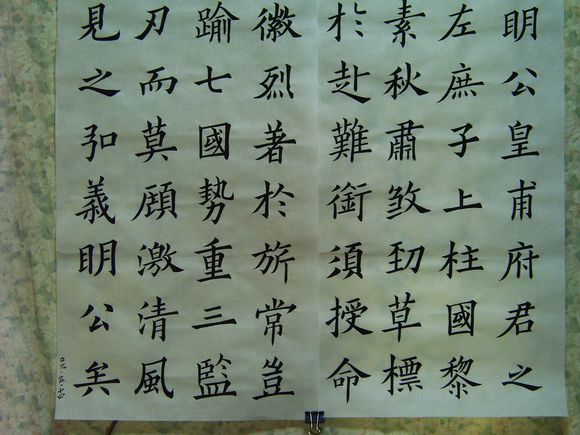 明公皇甫府君之
左庶子上柱國黎
素秋肅煞勁草標
於赴難銜須授命
徽烈著於旂常豈
踰七國勢重三監
刃而莫顧激清風
見之弘義明公矣